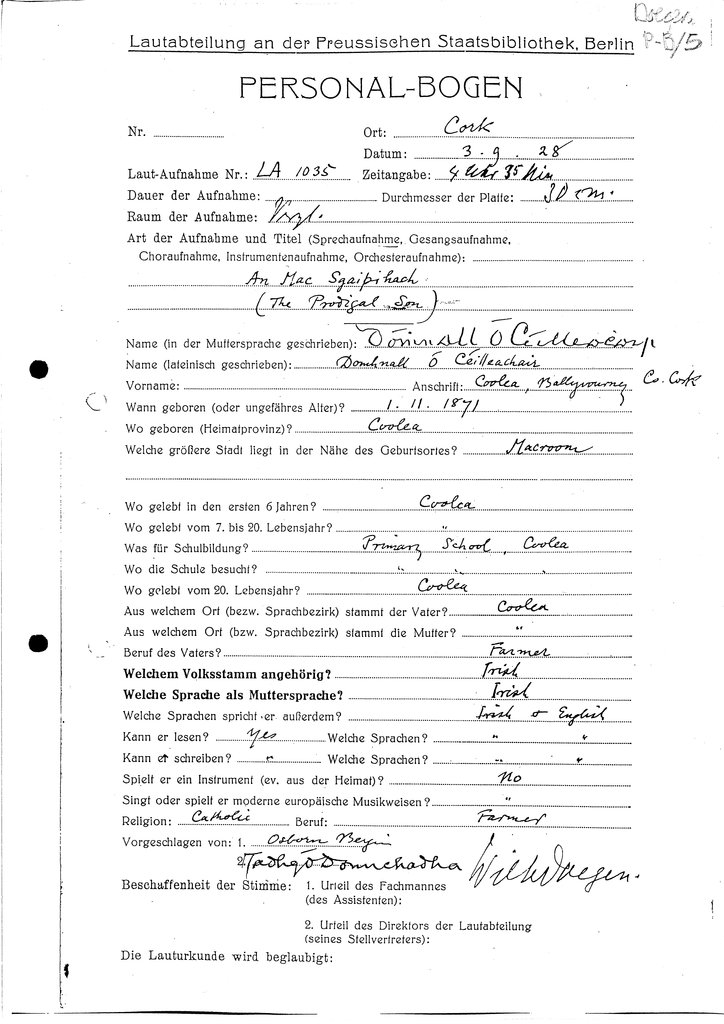 Doegen
Lautabteilung an der Preussischen Staatsbibliothek, Berlin P-B/5
PERSONAL-BOGEN
Nr. Ort: Cork
Datum: 3. 9. 28
Laut-Aufnahme Nr.: LA 1035 Zeitangabe: 4 Uhr 35 Min
Dauer der Aufnahme: Durchmesser der Platte: 30 cm.
Raum der Aufnahme:
Art der Aufnahme und Titel (Sprechaufnahme, Gesangsaufnahme,
Choraufnahme, Instrumentenaufnahme, Orchesteraufnahme):
An Mac Sgaipthach
(The Prodigal Son)
Name (in der Muttersprache geschrieben): Domnall Ó Céilleacair
Name (lateinisch geschrieben): Domhnall Ó Céilleachair
Vorname: Anschrift: Coolea, Ballyvourney Co. Cork
Wann geboren (oder ungefähres Alter)? 1. 11. 1871
Wo geboren (Heimatprovinz)? Coolea
Welche größere Stadt liegt in der Nähe des Geburtsortes? Macroom
Wo gelebt in den ersten 6 Jahren? Coolea
Wo gelebt vom 7. bis 20. Lebensjahr? "
Was für Schulbildung? Primary School, Coolea
Wo die Schule besucht? " " "
Wo gelebt vom 20. Lebensjahr? Coolea
Aus welchem Ort (bezw. Sprachbezirk) stammt der Vater? Coolea
Aus welchem Ort (bzw. Sprachbezirk) stammt die Mutter? "
Beruf des Vaters? Farmer
Welchem Volksstamm angehörig? Irish
Welche Sprache als Muttersprache? Irish
Welche Sprachen spricht er außerdem? Irish & English
Kann er lesen? Yes Welche Sprachen? " "
Kann er schreiben? " Welche Sprachen? " "
Spielt er ein Instrument (ev. aus der Heimat)? No
Singt oder spielt er moderne europäische Musikweisen? "
Religion: Catholic Beruf: Farmer
Vorgeschlagen von: 1. Osborn Bergin
2. Tadhg Ó Donnchadha Wilh Doegen.
Beschaffenheit der Stimme: 1. Urteil des Fachmannes
(des Assistenten):
2. Urteil des Direktors der Lautabteilung
(seines Stellvertreters):
Die Lauturkunde wird beglaubigt: